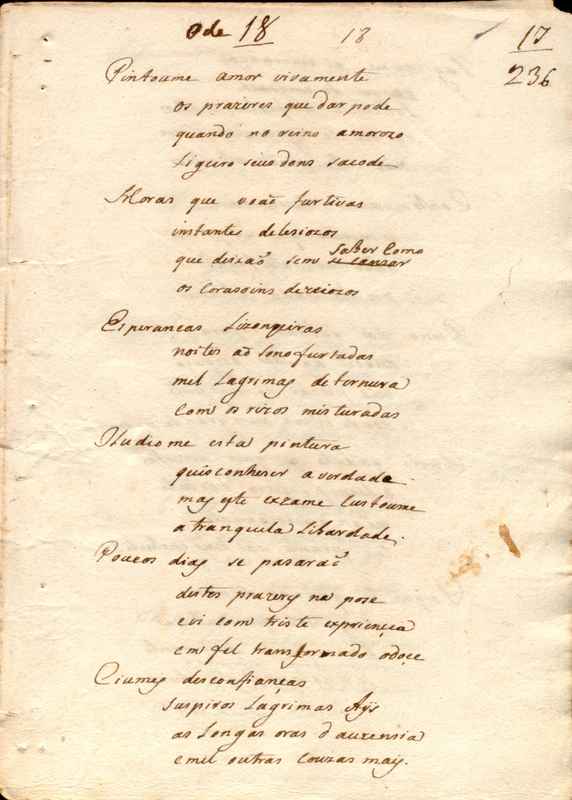 Ode 18 18 17
236
Pintoume amor vivamente
os prazeres que dar pode
quando no reino amorozo
Ligeiro seus dons sacode
Horas que voaõ furtivas
instantes deleciozos
que deixaõ sem se cansar saber Como
os Corasoins dezeiozos
Esperancas Lizongeiras
noites aõ sono furtadas
mil Lagrimas de ternura
com os rizos misturadas
Iludiome esta pintura
quis conhecer a verdade
mas este exzame Custoume
a tranquila Liberdade.
Poucos dias se pasaraõ
destes prazeres na pose
e vi com triste expriença
em fel transformado o doçe
Ciumes desconfianças
suspiros Lagrimas Ays
as Longas oras d auzensia
e mil outras Couzas mais.